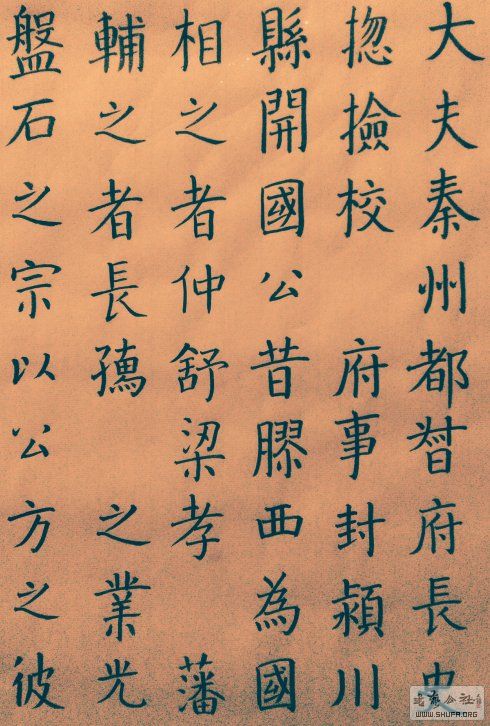 大夫秦州都督府長史
揔撿校 府事封潁川
縣開國公昔膠西為國
相之者仲舒梁孝 藩
輔之者長孺 之業光
盤石之宗以公方之彼
WWW.SHUFA.ORG